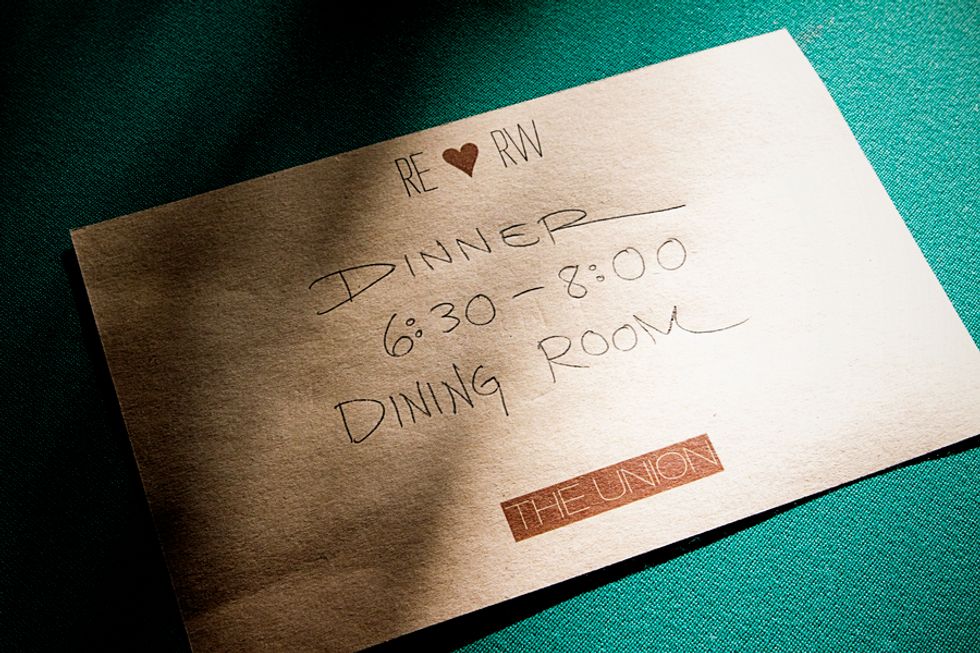 RE ♥ RW
DINNER
6:30 – 8:00
DINING ROOM
THE UNION